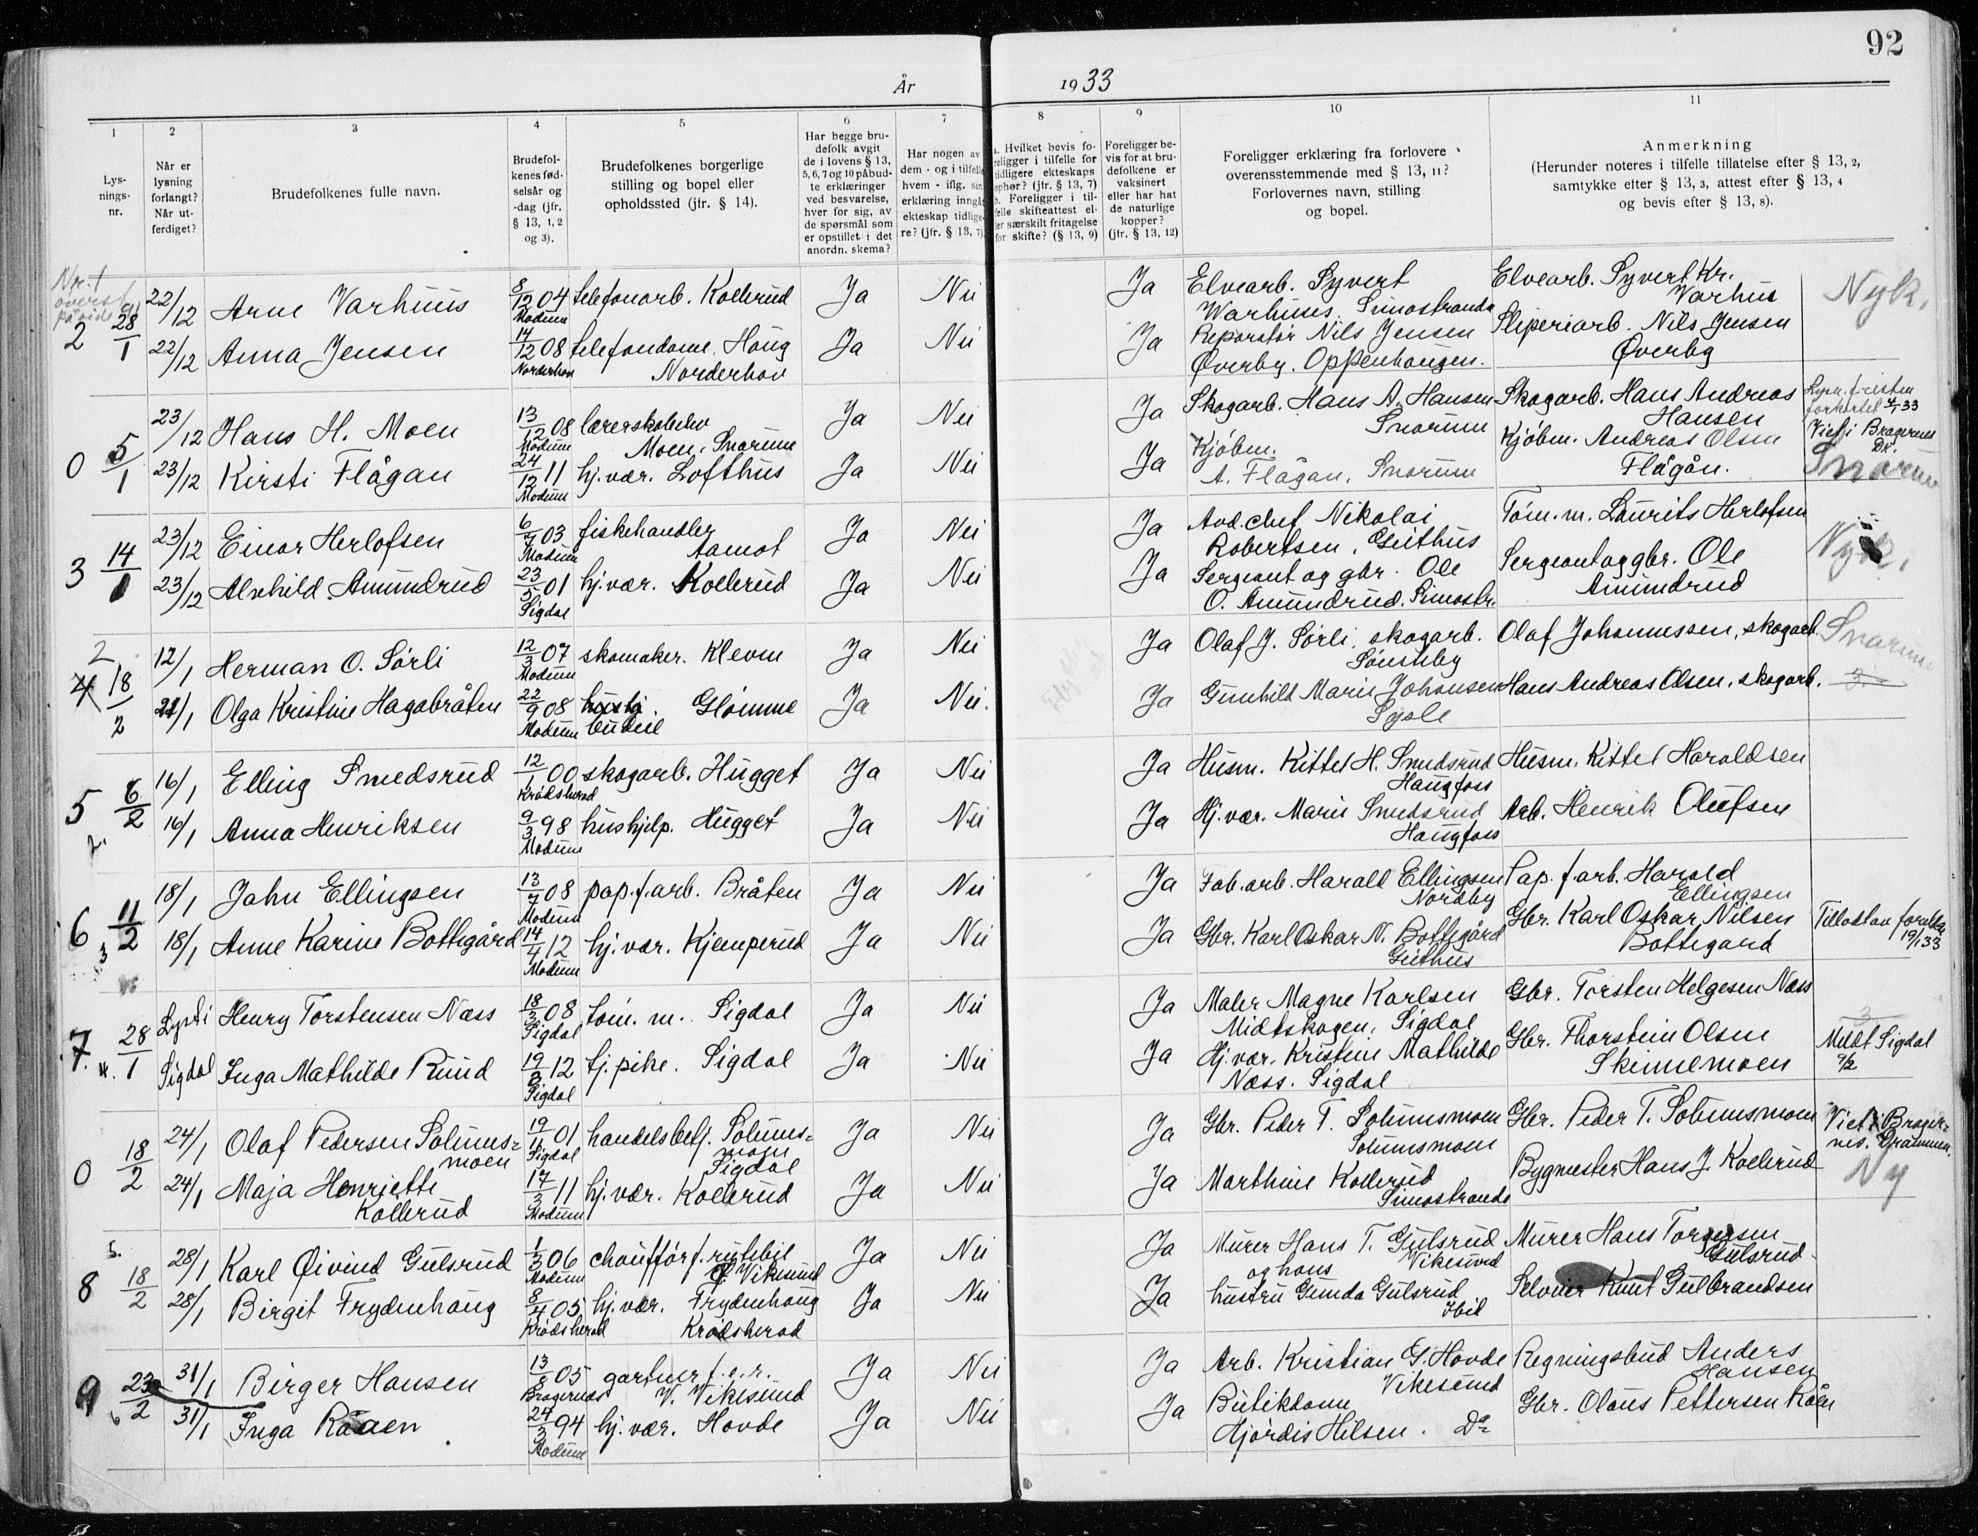 92
År 1933
1 2 3 4 5 6 7 8 9 10 11
Lysningsnr.
Når er lysning forlangt? Når utferdiget?
Brudefolkenes fulle navn.
Brudefolkenes fødselsår og -dag (jfr. § 13, 1, 2 og 3).
Brudefolkenes borgerlige stilling og bopel eller opholdssted (jfr. § 14).
Har begge brudefolk avgit de i lovens § 13, 5, 6, 7 og 10 påbudte erklæringer ved besvarelse, hver for sig, av de spørsmål som er opstillet i det anordn. skema?
Har nogen av dem - og i tilfelle hvem - iflg. sin erklæring inngått ekteskap tidligere? (jfr. § 13, 7)
a. Hvilket bevis foreligger i tilfelle for tidligere ekteskaps ophør? (jfr. § 13, 7) b. Foreligger i tilfelle skifteattest eller særskilt fritagelse for skifte? (§ 13, 9)
Foreligger bevis for at brudefolkene er vaksinert eller har hat de naturlige kopper? (jfr. § 13, 12)
Foreligger erklæring fra forlovere overensstemmende med § 13, 11? Forlovernes navn, stilling og bopel.
Anmerkning (Herunder noteres i tilfelle tillatelse efter § 13, 2, samtykke etter § 13, 3, attest efter § 13, 4 og bevis efter § 13, 8).
Nr. 1 øverst på side 91
2 28/1 22/12 Arne Varhuus 8/12 04 Modum telefonarb. Kollerud Ja Nei Ja Elvearb. Syvert Warhuus. Simostranda Elvearb. Syvert Kr. Varhus Nyk.
22/12 Anna Jensen 14/12 08 Norderhov telefondame. Haug Norderhov Ja Nei Ja Reparatør Nils Jensen Øverby. Oppenhaugen. Sliperiarb. Nils Jensen Øverby
0 5/1 23/12 Hans H. Moen 13/12 08 Modum lærerskoleelev Moen, Snarum Ja Nei Ja Skogarb. Hans A. Hansen Snarum Skogarb. Hans Andreas Hansen Lysn. fristen forkortet 4/1 33 Viet i Bragernes Dr.
23/12 Kirsti Flågan 24/12 11 Modum hj. vær. Lofthus Ja Nei Ja Kjøbm. A. Flågan, Snarum Kjøbm. Andreas Olsen Flågån. Snarum
3 14/1 23/12 Einar Herlofsen 6/7 03 Modum fiskehandler Aamot Ja Nei Ja Avd.chef Nikolai Robertsen, Geithus Tøm. m. Laurits Herlofsen Nyk.
23/12 Alvhild Amundrud 23/5 01 Sigdal hj. vær. Kollerud Ja Nei Ja Sergeant og gbr. Ole O. Amundrud. Simostr. Sergeant og gbr. Ole Amundrud
2
4 18/2 12/1 Herman O. Sørli 12/3 07 Modum skomaker. Kleven Ja Nei Ja Olaf J. Sørli, skogarb. Sønsteby Olaf Johannessen, skogarb. Snarum
21/1 Olga Kristine Hagabråten 22/9 08 Modum hushj. budeie Glomme Ja Nei. Ja Gunhild Marie Johansen Sysle Hans Andreas Olsen, skogarb.
5 6/2 16/1 Elling Smedsrud 12/1 00 Krødsherad skogarb. Hugget Ja Nei Ja Husm. Kittel H. Smedsrud Haugfoss Husm. Kittel Haroldsen
2. 16/1 Anna Henriksen 9/3 98 Modum hushjelp. Hugget Ja Nei Ja Hj. vær. Marie Smedsrud Haugfoss Arb. Henrik Olufsen
6 11/2 18/1 John Ellingsen 13/7 08 Modum pap.f.arb. Bråten Ja Nei Ja Fab.arb. Harald Ellingsen Nordby Pap.f.arb. Harold Ellingsen
3 18/1 Anne Karine Bottegård 14/4 12 Modum hj. vær. Kjemperud Ja Nei Ja Gbr. Karl Oskar N. Bottegård Geithus Gbr. Karl Oskar Nilsen Bottegard Tillatelse 19/1 33
7. 28/1 Lyst i Henry Torstensen Næss 18/3 08 Sigdal tøm. m. Sigdal Ja Nei Ja Maler Magne Karlsen Midtskogen, Sigdal Gbr. Torsten Helgesen Næss
4. Sigdal Inga Mathilde Ruud 19/8 12 Sigdal tj. pike. Sigdal Ja Nei Ja Hj. vær. Kristine Mathilde Næss. Sigdal Gbr. Thorstein Olsen Skinnemoen Meldt Sigdal 9/2
0 18/2 24/1 Olaf Pedersen Solumsmoen 19/11 01 Sigdal handelsbetj. Solumsmoen Sigdal Ja Nei Ja Gbr. Peder T. Solumsmoen Solumsmoen Gbr. Peder T. Solumsmoen Viet i Bragernes. Drammen.
24/1 Maja Henriette Kollerud 17/3 11 Modum hj. vær. Kollerud Ja Nei Ja Marthine Kollerud Simostranda Bygmester Hans J. Kollerud Ny
5.
8 18/2 28/1 Karl Øivind Gulsrud 1/3 06 Modum chaufför f. rutebil V. Vikesund Ja Nei Ja Murer Hans T. Gulsrud Vikesund Murer Hans Torgersen Gulsrud
28/1 Birgit Frydenhaug 8/4 05 Krødsherad hj. vær. Frydenhaug Krødsherad Ja Nei Ja og hans hustru Gunda Gulsrud Ibid Selveier Knut Gulbrandsen
9 23/2 31/1 Birger Hansen 13/8 05 Bragernes gartner f.e.r. V. Vikesund Ja Nei Ja Arb. Kristian G. Hovde Vikesund Regningsbud Anders Hansen
6 31/1 Inga Råaen 24/3 94 Modum hj. vær. Hovde Ja Nei Ja Butikdame Hjørdis Hilsen. Do Gbr. Olaus Pettersen Råen